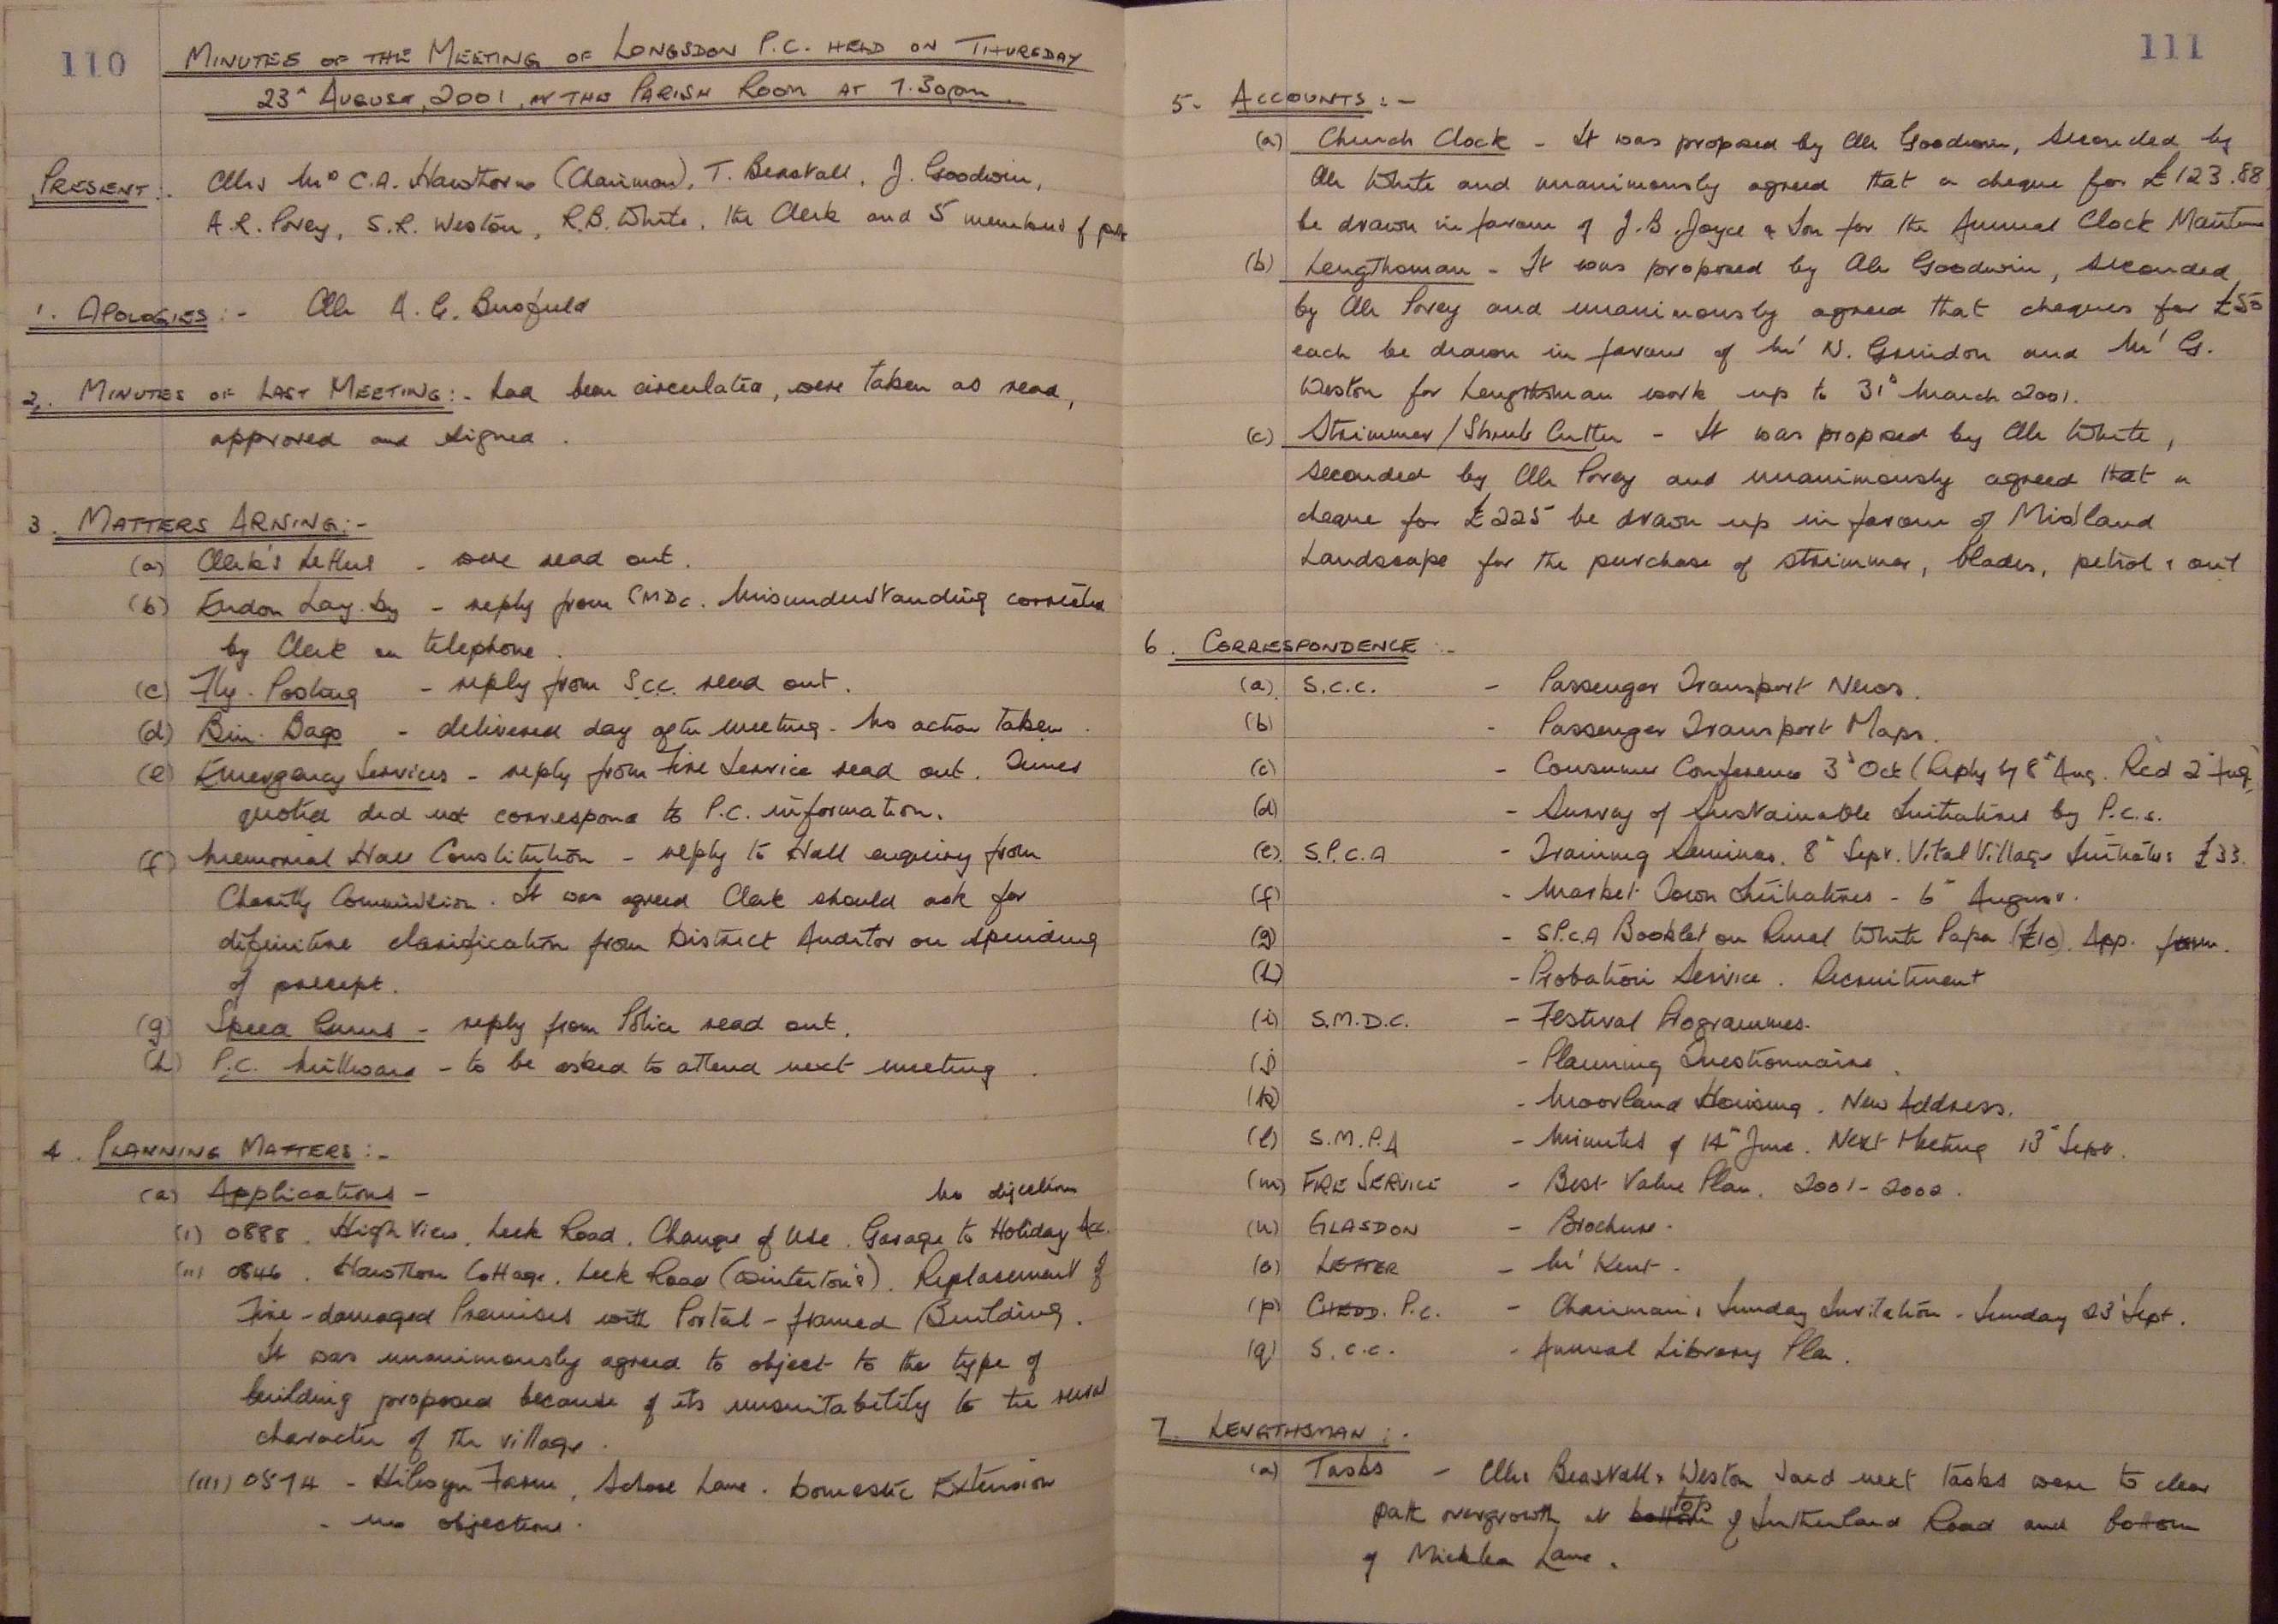 110
MINUTES OF THE MEETING OF LONGSDON P.C. HELD ON THURSDAY
23rd AUGUST, 2001, IN THE PARISH ROOM AT 7.30pm.
PRESENT:- Cllrs Mrs C.A. Hawthorne (Chairman), T. Beastall, J. Goodwin,
A.R. Povey, S.R. Weston, R.B. White, the Clerk and 5 members of
1. APOLOGIES:- Cllr A.G.
2. MINUTES OF LAST MEETING:- had been circulated, were taken as read,
approved and signed.
3. MATTERS ARISING:-
(a) Clerk's Letters - were read out.
(b) Endon Lay-by - reply from SMDC. Misunderstanding corrected
by Clerk on telephone.
(c) Fly-Posting - reply from S.C.C. read out.
(d) Bin-Bags - delivered day after meeting - No action taken.
(e) Emergency Services - reply from Fire Service read out. Times
quoted did not correspond to P.C. information.
(f) Memorial Hall Constitution - reply to Hall enquiry from
Charity Commission. It was agreed Clerk should ask for
definitive clarification from District Auditor on spending
of precept.
(g) Speed Guns - reply from Police read out.
(h) P.C. Millward - to be asked to attend next meeting.
4. PLANNING MATTERS:-
(a) Applications -
No objections
(i) 0888. High View, Leek Road. Change of Use. Garage to Holiday Acc.
(ii) 0846. Hawthorn Cottage, Leek Road (Winterton's). Replacement of
Fire-damaged Premises with Portal-framed Building.
It was unanimously agreed to object to the type of
building proposed because of its unsuitability to the rural
character of the village.
(iii) 0574 - Farm, School Lane. Domestic Extension
- no objections.
111
5. ACCOUNTS:-
(a) Church Clock - It was proposed by Cllr Goodwin, seconded by
Cllr White and unanimously agreed that a cheque for £123.88
be drawn in favour of J.B. Joyce & Son for the Annual Clock
(b) Lengthsman - It was proposed by Cllr Goodwin, seconded
by Cllr Povey and unanimously agreed that cheques for £50
each be drawn in favour of Mr N. Grindon and Mr G.
Weston for Lengthsman work up to 31st March 2001.
(c) Strimmer/Shrub Cutter - It was proposed by Cllr White,
seconded by Cllr Povey and unanimously agreed that a
cheque for £225 be drawn up in favour of Midland
Landscape for the purchase of strimmer, blades, petrol &
6. CORRESPONDENCE:-
(a) S.C.C. - Passenger Transport News.
(b) - Passenger Transport Maps.
(c) - Consumer Conference 3rd Oct (Reply by 8th Aug. Rec'd 2nd Aug)
(d) - Survey of Sustainable Initiatives by P.C.s.
(e) S.P.C.A - Training Seminar. 8th Sept. Vital Village Initiatives £33.
(f) - Market Town Initiatives - 6th August.
(g) - SPCA Booklet on Rural White Paper (£10). App. form.
(h) - Probation Service. Recruitment
(i) S.M.D.C. - Festival Programmes.
(j) - Planning Questionnaire.
(k) - Moorland Housing. New Address.
(l) S.M.P.A - Minutes of 14th June. Next Meeting 13th Sept.
(m) FIRE SERVICE - Best Value Plan. 2001-2002.
(n) GLASDON - Brochure.
(o) LETTER - Mr Kent.
(p) CHEDD. P.C. - Chairman's Sunday Invitation - Sunday 23rd Sept.
(q) S.C.C. - Annual Library Plan.
7. LENGTHSMAN:-
(a) Tasks - Cllrs Beastall & Weston said next tasks were to clear
path overgrowth at bottom top of Sutherland Road and bottom
of Micklea Lane.